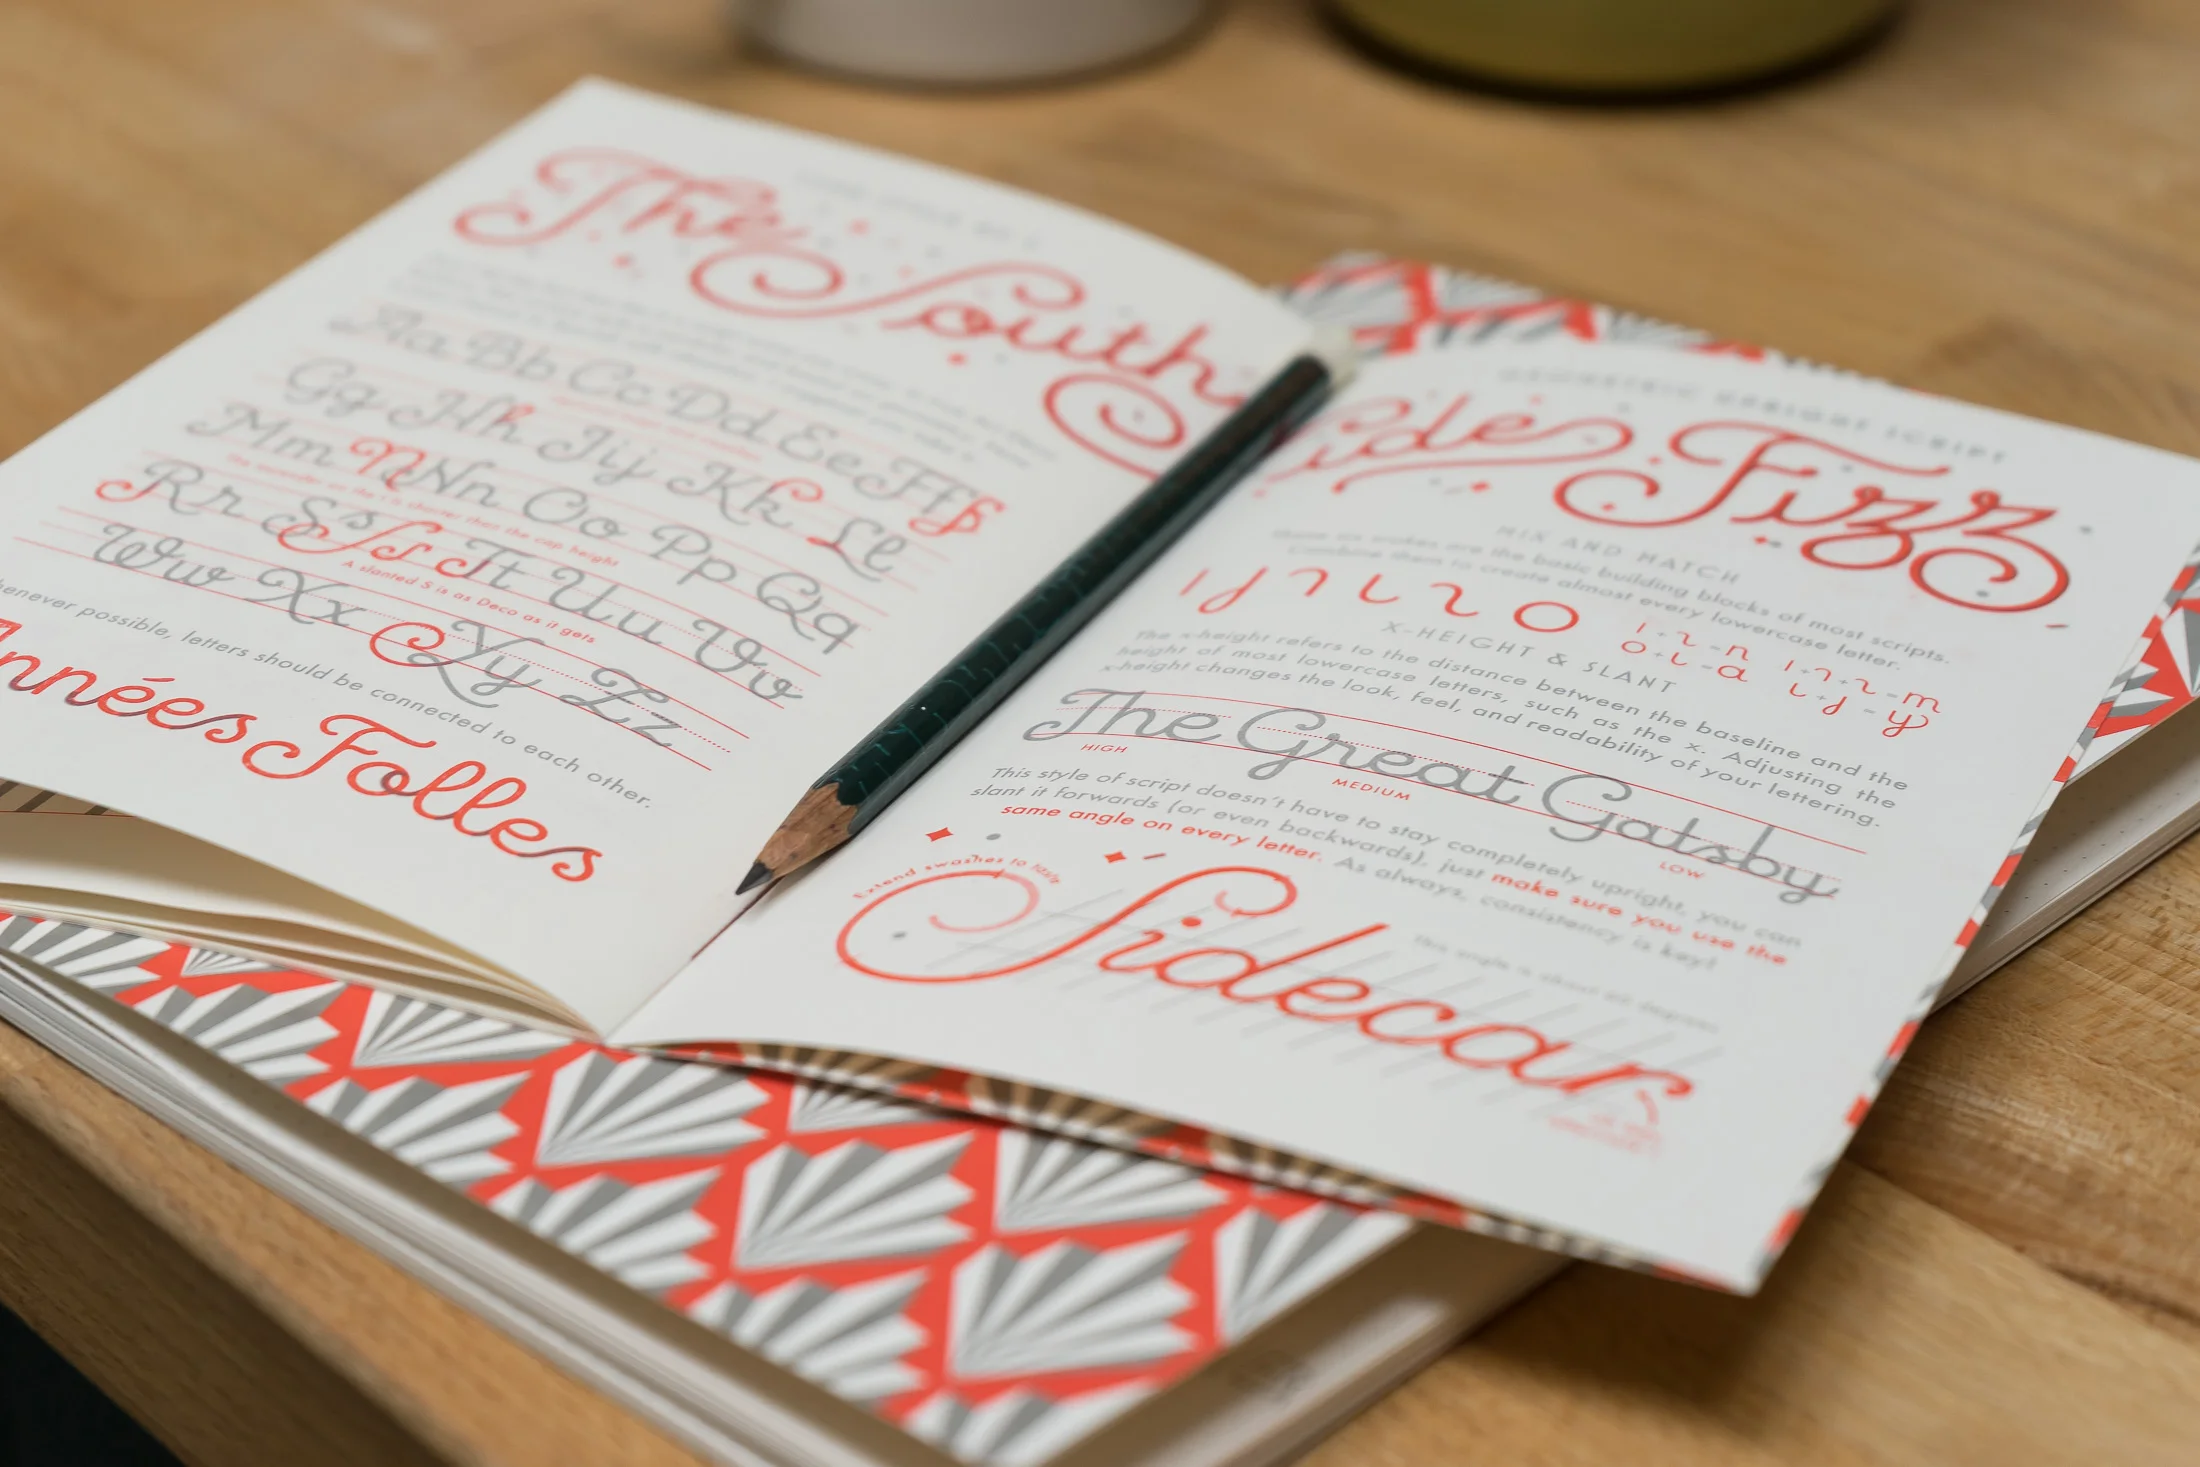 The South
Aa Bb Cc Dd Ee Ff f
Gg Hh h Iij Kk L Ll
Mm n Nn Oo Pp Qq
The
than the cap height
R Rr Ss Ss J Tt Uu Vv
A slanted S is as Deco as it gets
Ww Xx Yy Zz
henever possible, letters should be connected to each other.
Années Folles
GEOMETRIC UPRIGHT SCRIPT
side Fizz
MIX AND MATCH
are the basic building blocks of most scripts.
Combine them to create almost every lowercase letter.
1 + 2 = n 1 + 1 + 2 = m
o + ι = a ι + j = y
X-HEIGHT & SLANT
The x-height refers to the distance between the baseline and the
height of most lowercase letters, such as the x. Adjusting the
x-height changes the look, feel, and readability of your lettering.
The Great Gatsby
HIGH
MEDIUM
LOW
This style of script doesn't have to stay completely upright, you can
slant it forwards (or even backwards), just make sure you use the
same angle on every letter. As always, consistency is key!
Extend swashes to taste
This angle is about 60 degrees
Sidecar